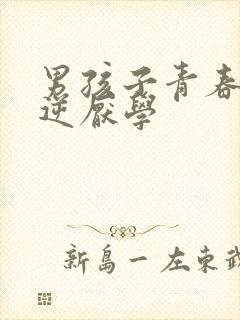 男孩子青春
逆厭學
新島一 左東武